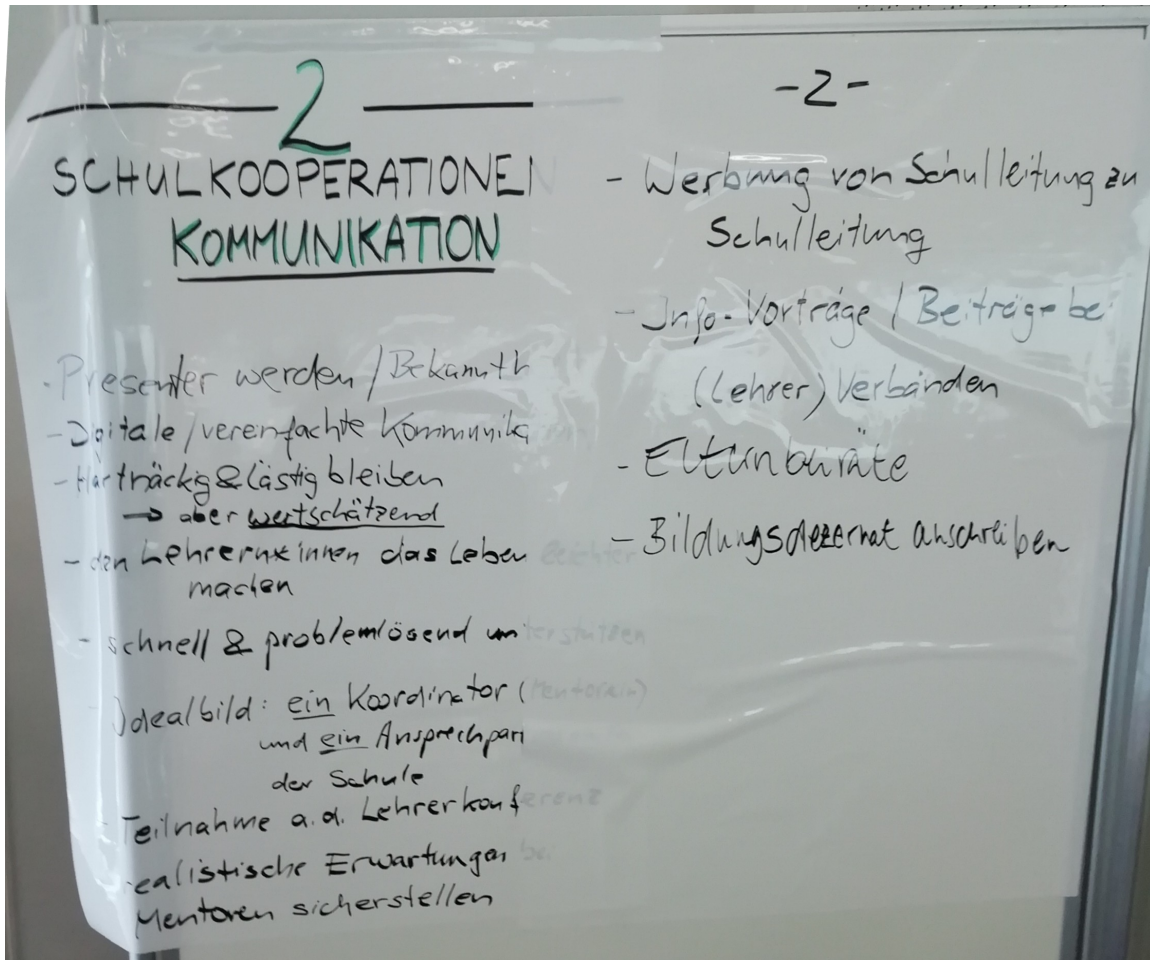 2
SCHULKOOPERATIONEN
KOMMUNIKATION
- Presenter werden / Bekannth
- Digitale / vereinfachte Kommunika
- Hartnäckig & lästig bleiben
→ aber wertschätzend
- den Lehrern*innen das Leben leichter
machen
- schnell & problemlösend unterstützen
- Idealbild: ein Koordinator (Mentorin)
und ein Ansprechpar
der Schule
- Teilnahme a.d. Lehrerkonferenz
realistische Erwartungen bei
Mentoren sicherstellen
- 2 -
- Werbung von Schulleitung zu
Schulleitung
- Info-Vorträge / Beiträge bei
(Lehrer) Verbänden
- Bildungsdezernat anschreiben